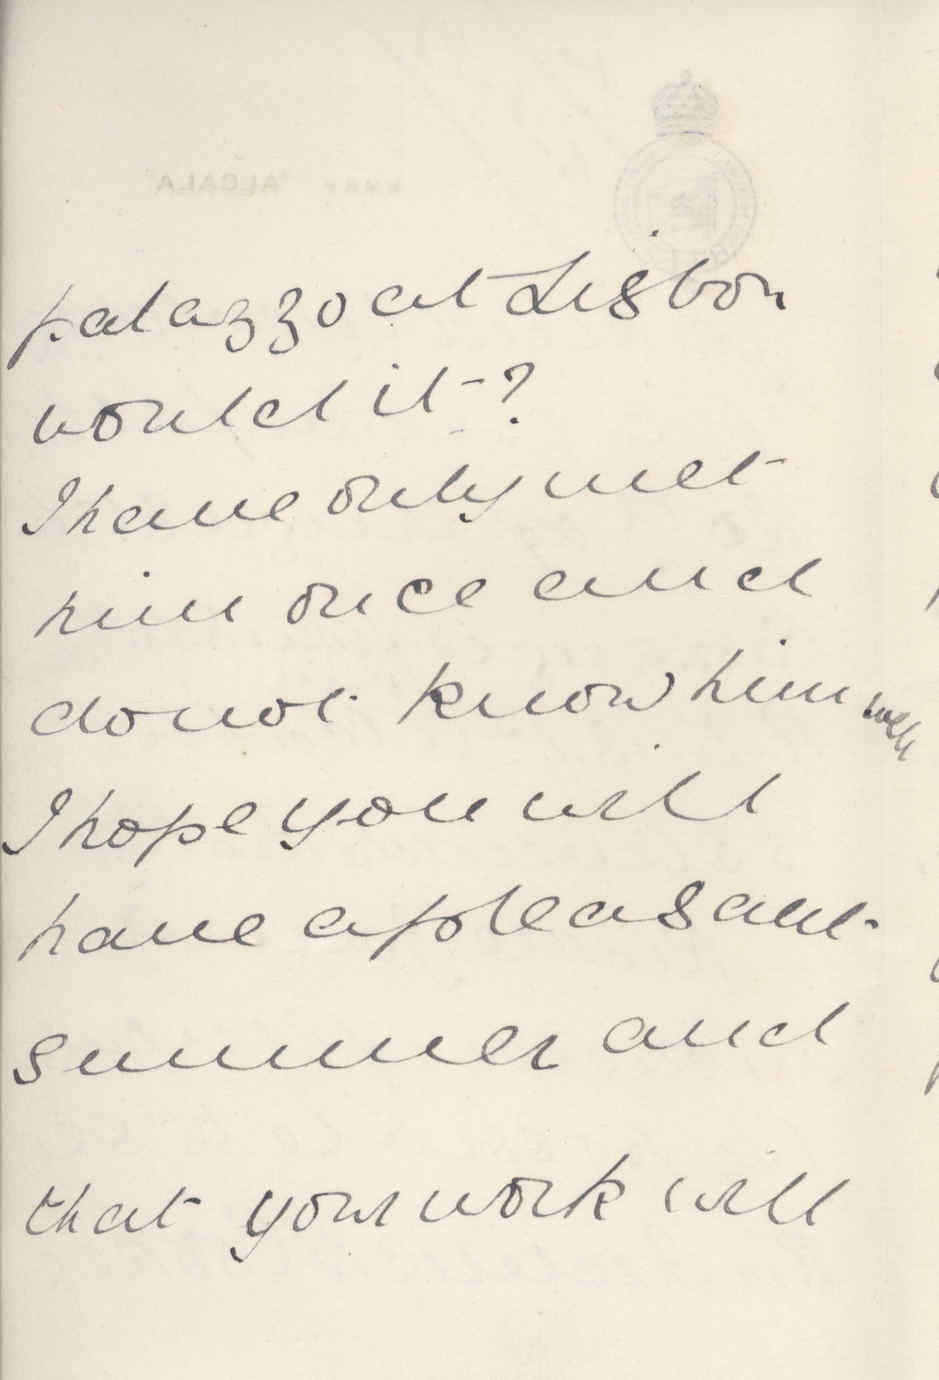 palazzo at Lisbon
would it?
I have only met
him once and
do not know him well
I hope you will
have a pleasant
summer and
that your work will